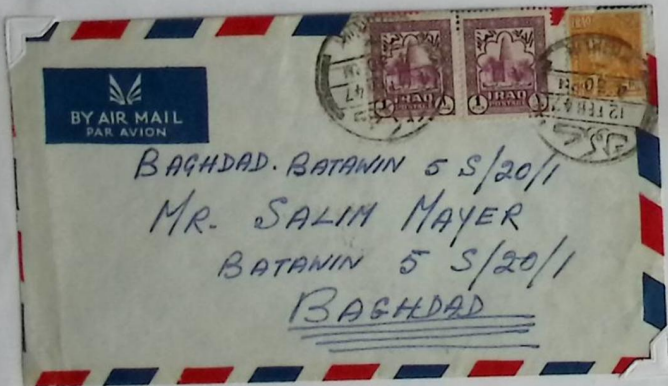 BY AIR MAIL
PAR AVION
1 IRAQ 1
POSTAGE
1 IRAQ 1
POSTAGE
12 FEB 47
BAGHDAD. BATAWIN 5 S/20/1
MR. SALIM MAYER
BATAWIN 5 S/20/1
BAGHDAD